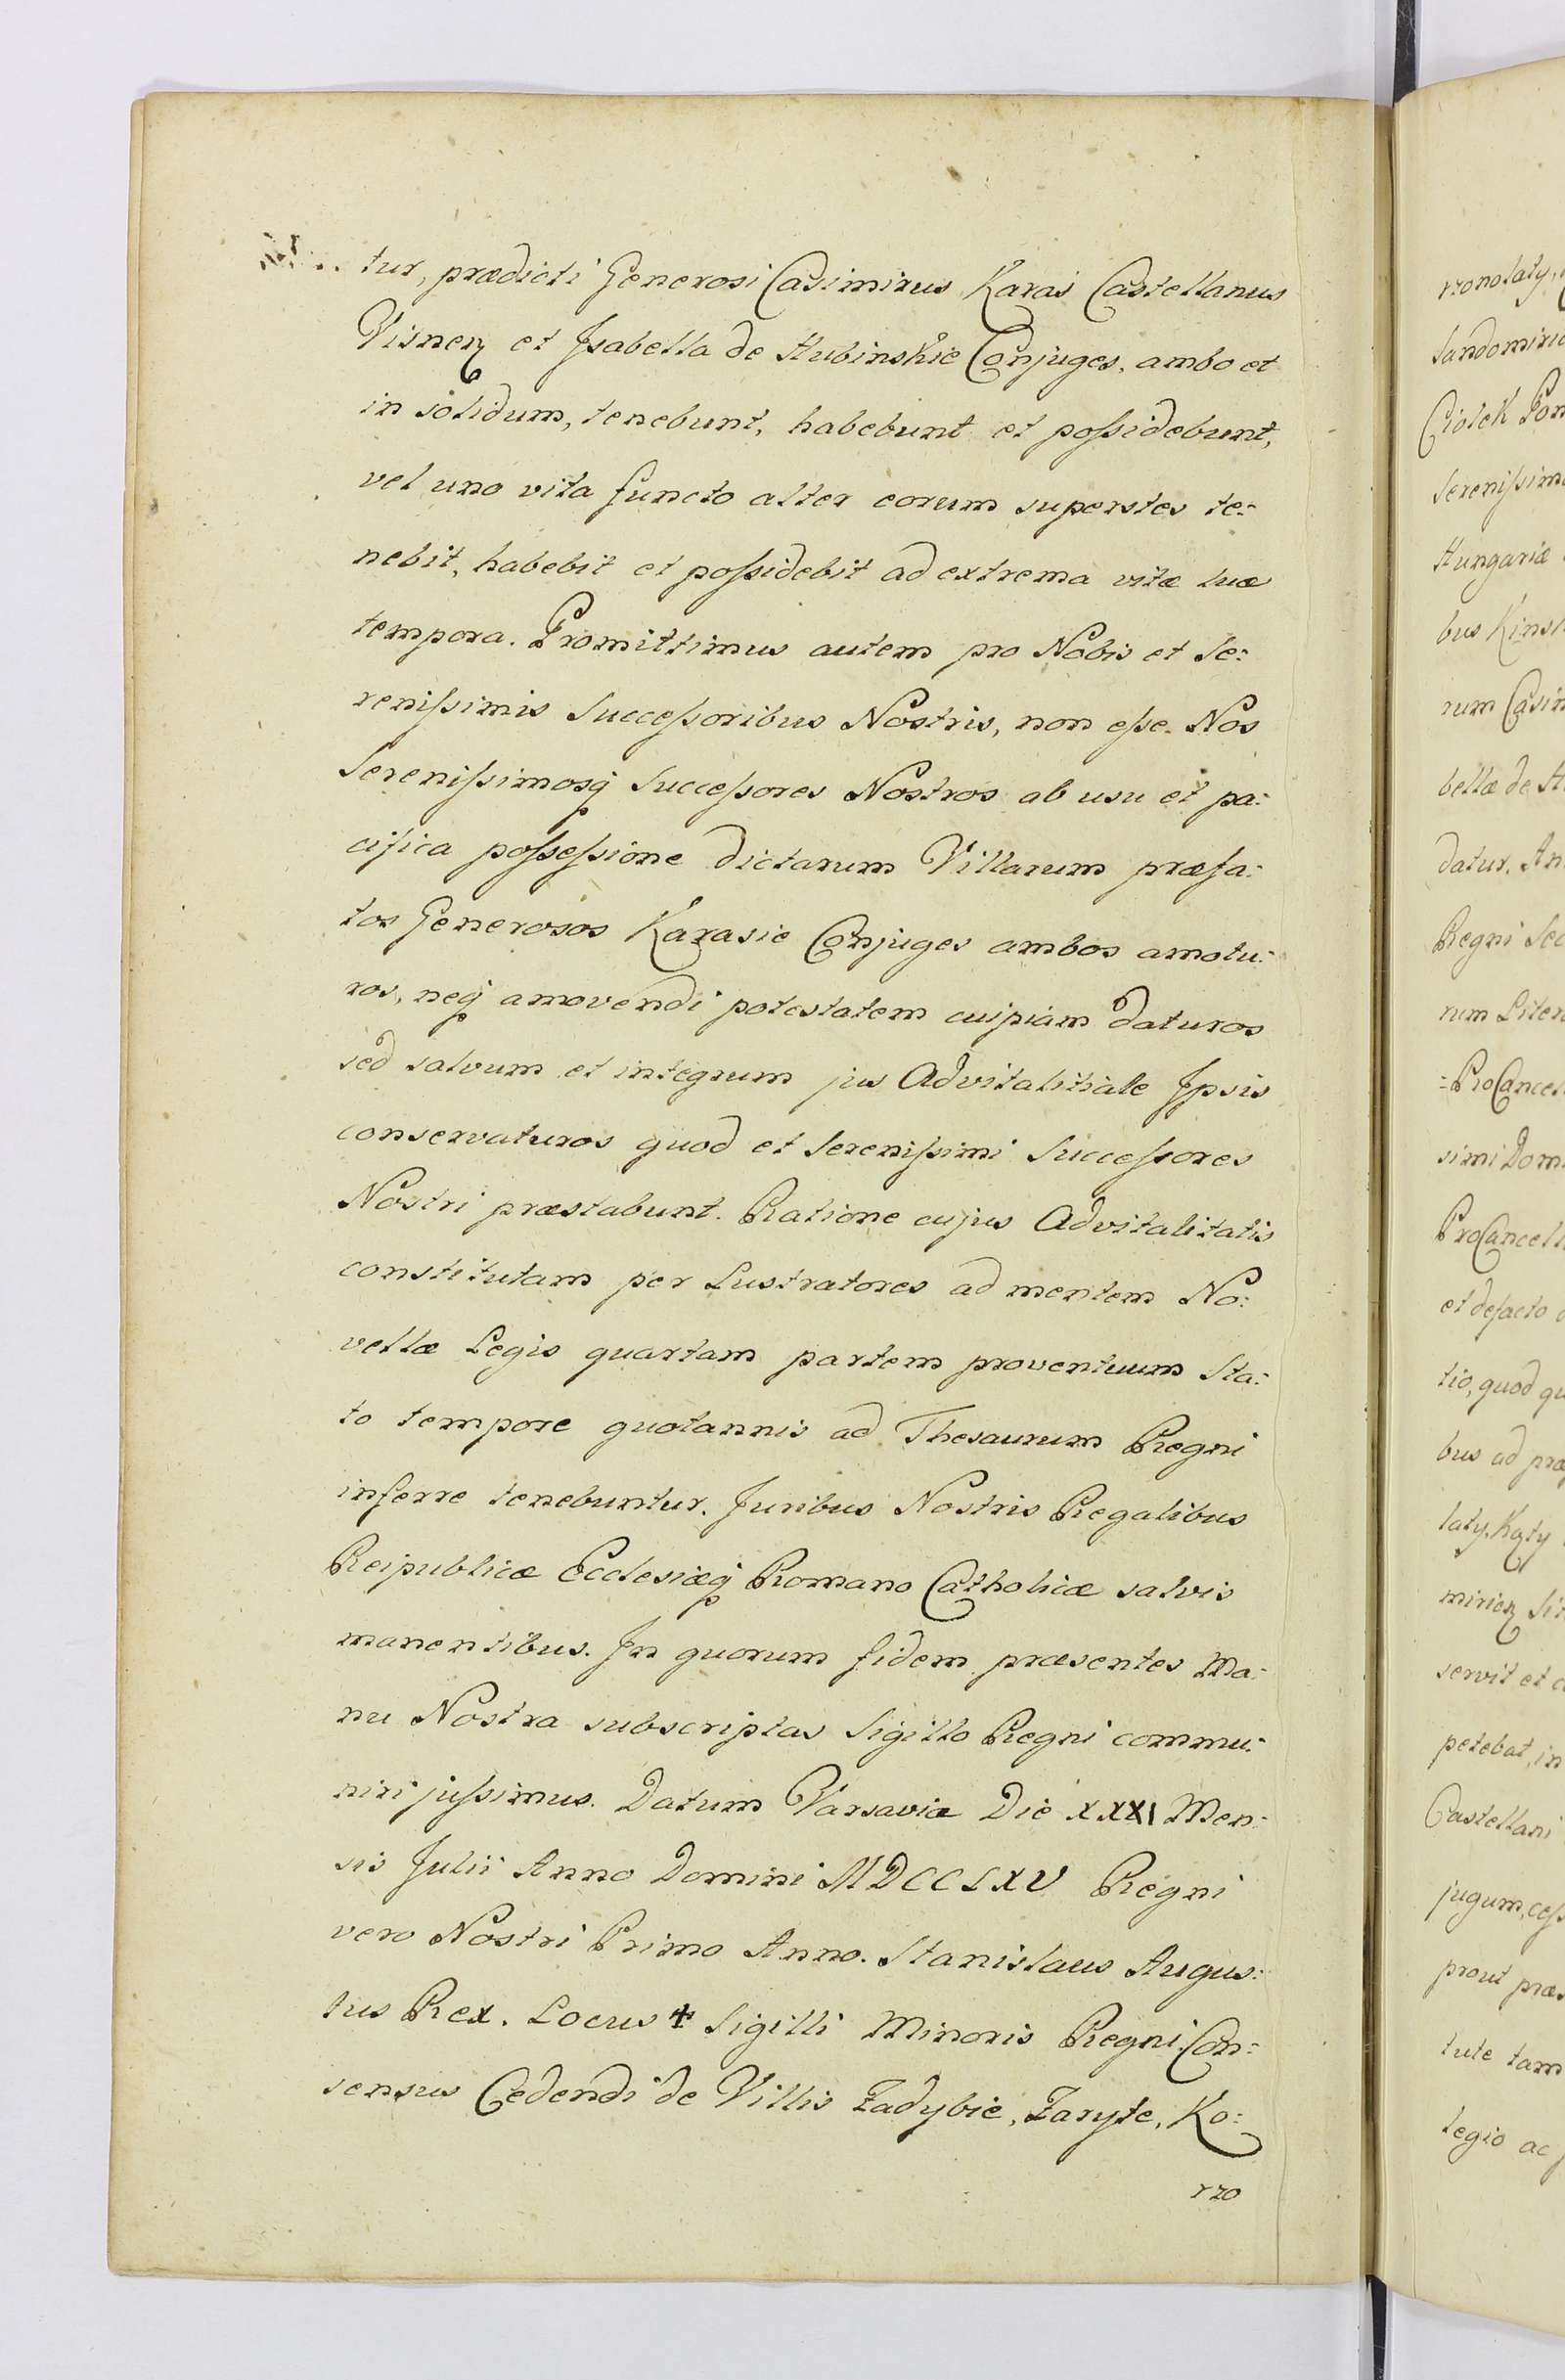 tur, prædicti Generosi Casimirus Karaś Castellanus
Visnen et Isabella de Hubinskie Conjuges, ambo et
in solidum, tenebunt, habebunt et poſsidebunt,
vel uno vita functo alter eorum superstes te:
nebit, habebit et poſsidebit ad extrema vitæ suæ
tempora. Promittimus autem pro Nobis et Se:
reniſsimis Succeſsoribus Nostris, non eſse Nos
Sereniſsimosq Succeſsores Nostros ab usu et pa:
cifica poſseſsione dictarum Villarum præfa:
tos Generosos Karasie Conjuges ambos amotu:
ros, neq amovendi potestatem cuipiam daturos
sed salvum et integrum jus Advitalitiale Ipsis
conservaturos quod et Sereniſsimi Succeſsores
Nostri præstabunt. Ratione cujus Advitalitatis
constitutam per Lustratores ad mentem No:
vellæ Legis quartam partem proventuum Sta:
to tempore quotannis ad Thesaurum Regni
inferre tenebuntur. Juribus Nostris Regalibus
Reipublicæ Ecclesiæq Romano Catholicæ salvis
manentibus. In quorum fidem præsentes Ma:
nu Nostra subscriptas Sigillo Regni commu:
niri juſsimus. Datum Varsaviæ Die XXXI Men:
sis Julii Anno Domini MDCCLXV Regni
vero Nostri Primo Anno. Stanislaus Augus:
tus Rex. Locus + Sigilli Minoris Regni. Con:
sensus Cedendi de Villis Zadybie, Zaryte, Ko:
rzo
rzonolaty,
Sandomiri
Ciolek Pon
Sereniſsim
Hungariæ
bus Kinsk
rum Casim
bellæ de H
datur. An
Regni Sec
rum Liter
=ProCancel
simi Dom
ProCancell
et defacto
tio, quod qu
bus ad præ
laty, Kąty
mirien Si
servit et c
petebat, in
Castellani
jugum, ceſs
prout præs
tute tam
legio ac